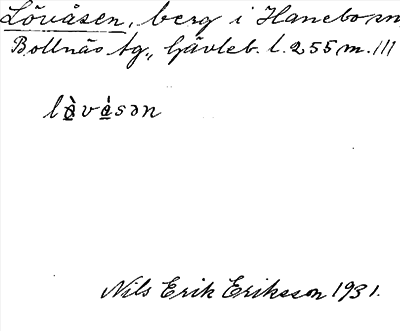 Lövåsen, berg i Hanebo sn
Bollnäs tg., Gävleb. l. 255 m. /11
lò̲vå̲sən
Nils Erik Eriksson 1931.